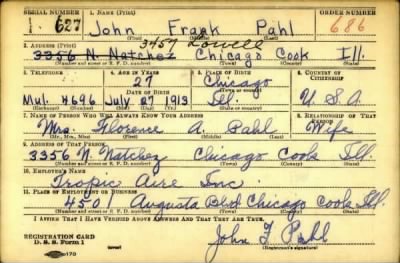 SERIAL NUMBER 1. NAME (Print) ORDER NUMBER
1 627 John Frank Pahl 686
(First) (Middle) (Last)
2. ADDRESS (Print) 3457 Lowell
3356 N. Natchez Chicago Cook Ill.
(Number and street or R. F. D. number) (Town) (County) (State)
3. TELEPHONE 4. AGE IN YEARS 5. PLACE OF BIRTH 6. COUNTRY OF CITIZENSHIP
27 Chicago
DATE OF BIRTH (Town or county)
Mul. 4696 July 27 1913 Ill. U.S.A.
(Exchange) (No.) (Mo.) (Day) (Yr.) (State or country)
7. NAME OF PERSON WHO WILL ALWAYS KNOW YOUR ADDRESS 8. RELATIONSHIP OF THAT PERSON
Mrs. Florence A. Pahl Wife
(Mr., Mrs., Miss) (First) (Middle) (Last)
9. ADDRESS OF THAT PERSON
3356 N. Natchez Chicago Cook Ill.
(Number and street or R. F. D. number) (Town) (County) (State)
10. EMPLOYER'S NAME
Tropic Aire Inc.
11. PLACE OF EMPLOYMENT OR BUSINESS
4501 Augusta Blvd Chicago Cook Ill.
(Number and street or R. F. D. number) (Town) (County) (State)
I AFFIRM THAT I HAVE VERIFIED ABOVE ANSWERS AND THAT THEY ARE TRUE.
REGISTRATION CARD
D. S. S. Form 1 John F Pahl
(Registrant's signature)